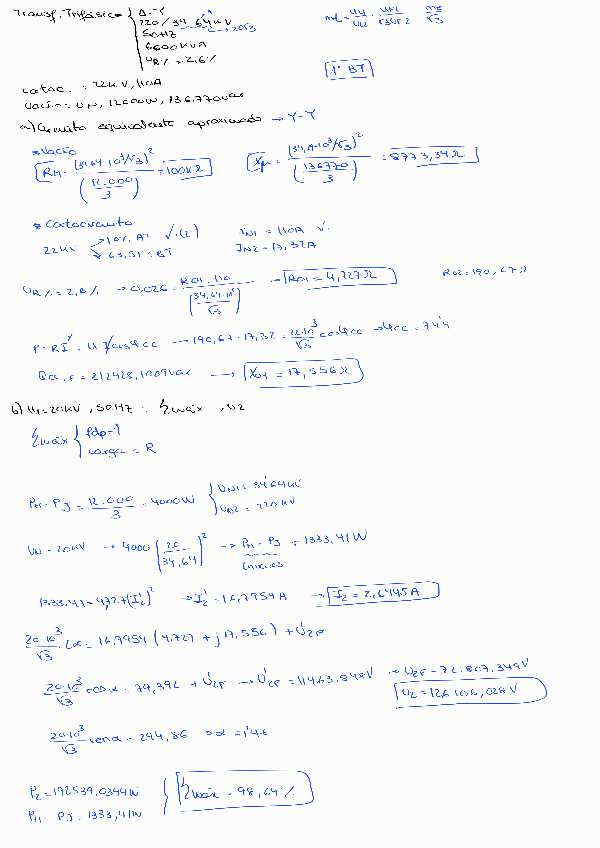 Transf. Trifásico { Δ-Y
220/34,64 KV → 20√3
50HZ
6600KVA
UR% = 2,6%
mt = U1/U2 = U1F/√3UF2 = me/√3
1º BT
cotoc. : 22KV, 110A
Vacío : UN, 12000W, 136.770var
a) Circuito equivalente aproximado → Y-Y
* Vacío
RH = (34,64·10³/√3)² / (12.000/3) = 100kΩ
Xμ = (34,64·10³/√3)² / (136770/3) = 8773,34Ω
* Cortocircuito
22KV → 10% AT √.(2)
→ 63,51% BT
IN1 = 110A √.
IN2 = 17,32A
UR% = 2,6% → 0,026 = RO1.110 / (34,64·10³/√3) → RO1 = 4,727Ω
RO2 = 190,67Ω
P = RI² = UIcosφcc → 190,67 · 17,32 = 22·10³/√3 cosφcc → φcc = 74'9
Qcc,F = 212428,1009var → XO1 = 17,556Ω
b) U1 = 20KV, 50HZ : ξmáx, U2
ξmáx { fdp=1
carga = R
PH = PJ = 12.000/3 = 4000W { UN1 = 34'64KV
UN2 = 220KV
UN = 20KV → 4000 (20/34,64)² → PH = PJ = 1333,41W
1333,41 = 4,727(I2')² → I2' = 16,7954A → I2 = 2,6445A
20·10³/√3 ∠α = 16,7954 (4,727 + j17,556) + U2F'
20·10³/√3 cosα = 79,392 + U2F' → U2F' = 11463,848V → U2F = 72.807,349V
U2 = 126106,028V
20·10³/√3 senα = 294,86 → α = 1'46
P2 = 192539,0344W
PH = PJ = 1333,41W
ξmáx = 98,64%